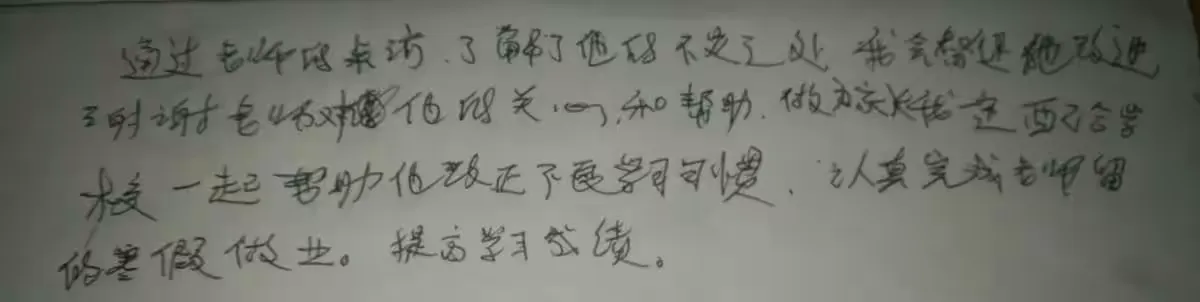 通过老师的来访.了解了他的不足之处 我会督促他改进
同时谢谢老师对他的关心,和帮助.做为家长我一定配合学
校一起帮助他改正不良学习习惯.认真完成老师留
的寒假做业。提高学习成绩。